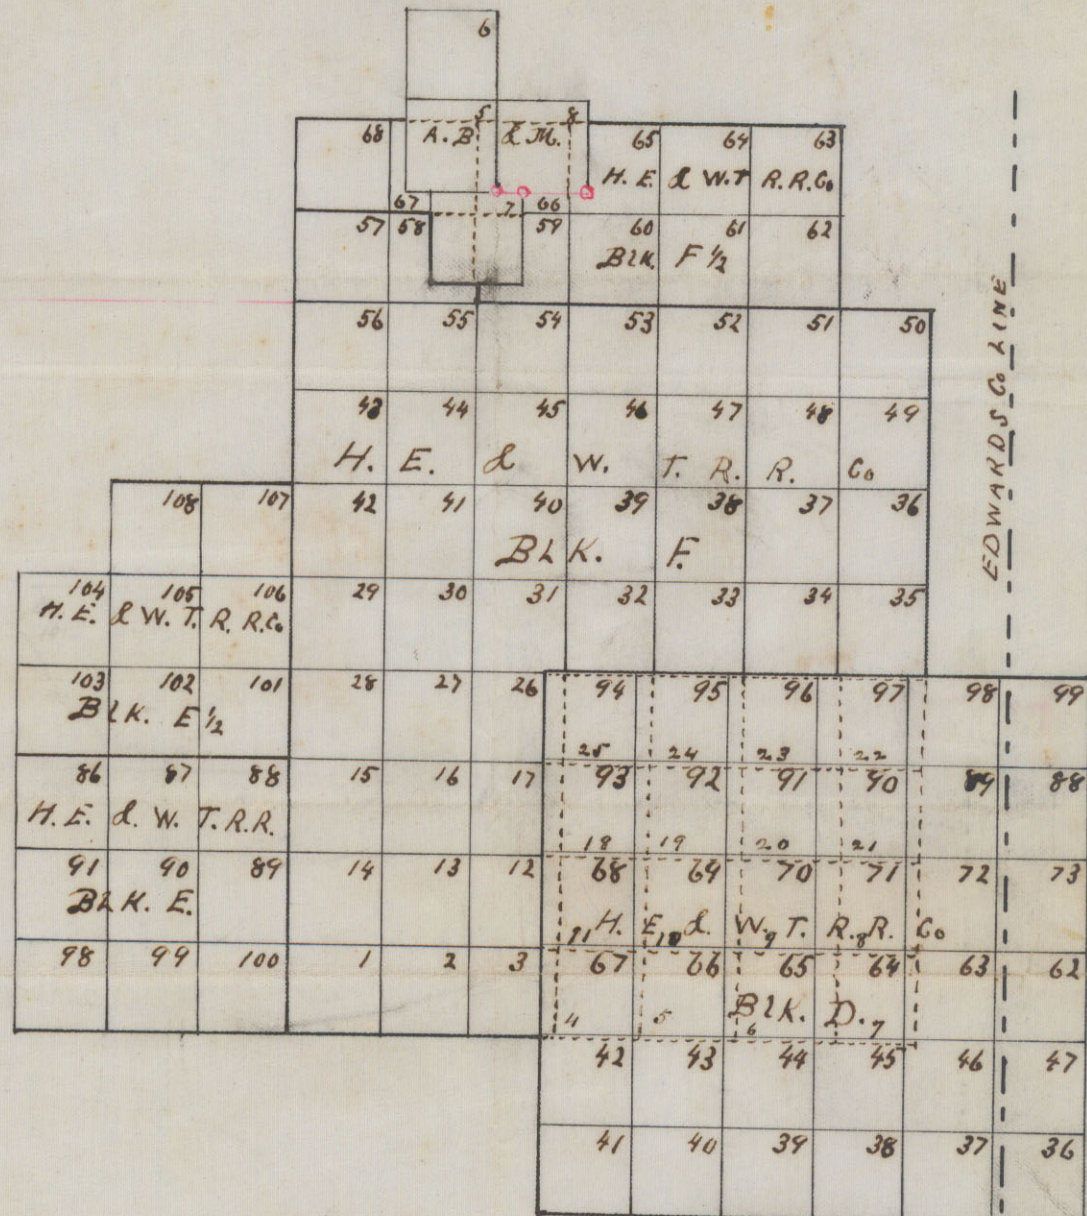 6
5 8
68 A. B & M. 65 64 63
H. E. & W. T R. R. Co
67 7 66
57 58 59 60 61 62
BLK. F ½
56 55 54 53 52 51 50
43 44 45 46 47 48 49
H. E. & W. T. R. R. Co
108 107 42 41 40 39 38 37 36
BLK. F.
104 105 106 29 30 31 32 33 34 35
H. E. & W. T. R. R. Co
103 102 101 28 27 26 94 95 96 97 98 99
BLK. E ½
25 24 23 22
86 87 88 15 16 17 93 92 91 90 89 88
H. E. & W. T. R. R.
18 19 20 21
91 90 89 14 13 12 68 69 70 71 72 73
BLK. E.
11 H. E. 10 & W. 9 T. R. 8 R. Co
98 99 100 1 2 3 67 66 65 64 63 62
4 5 BLK. 6 D. 7
42 43 44 45 46 47
41 40 39 38 37 36
EDWARDS Co LINE